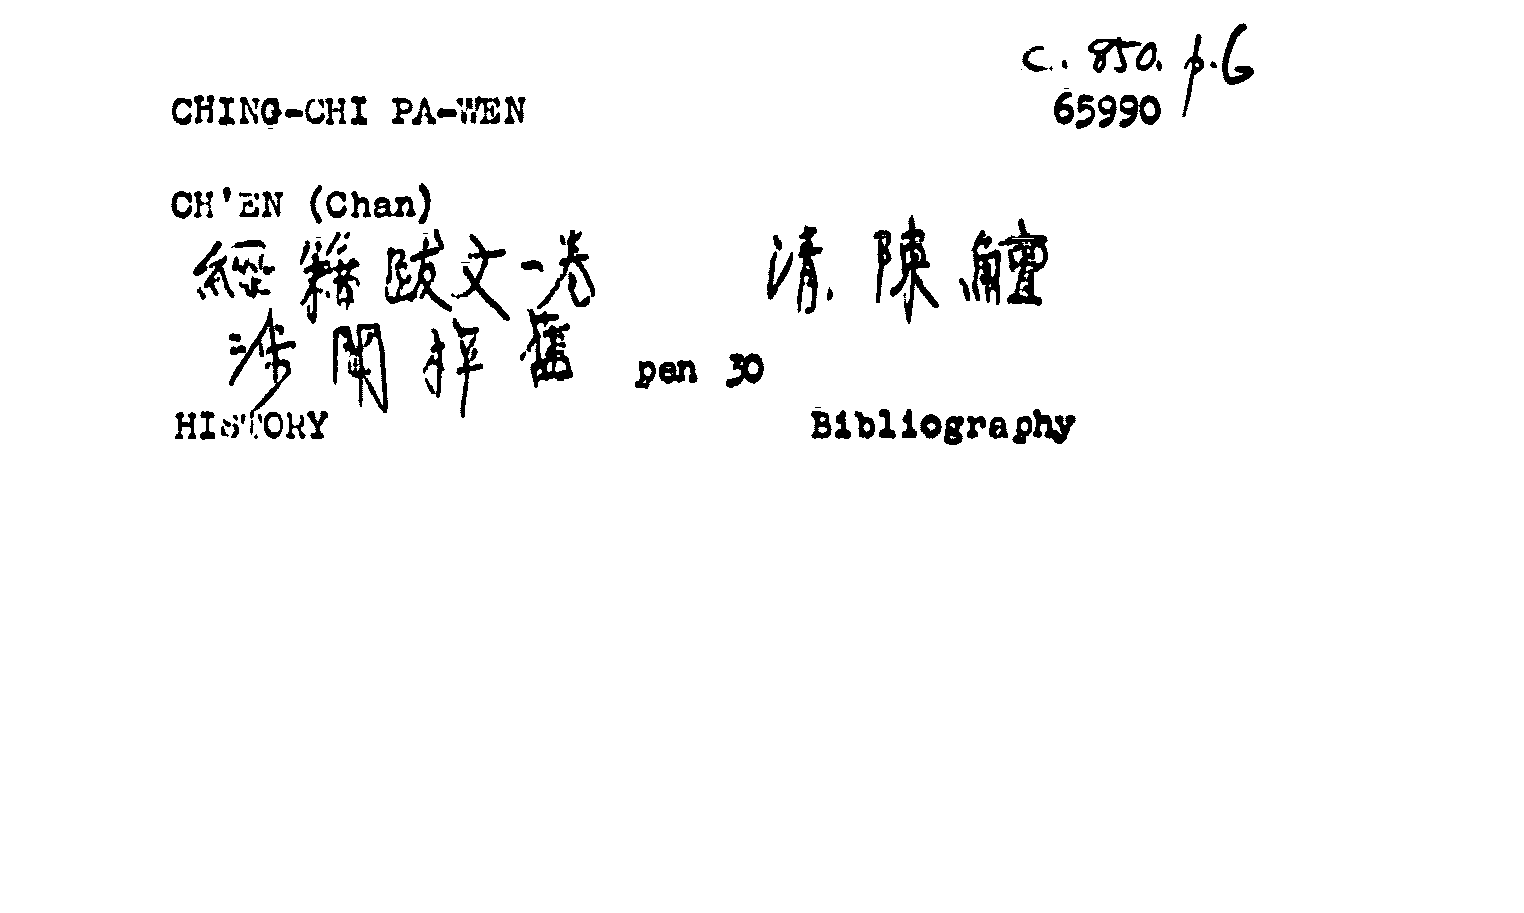 C. 850. p. 6
CHING-CHI PA-WEN 65990
CH'EN (Chan)
經籍跋文一卷 清. 陳鱣
涉聞梓舊 pen 30
HISTORY Bibliography